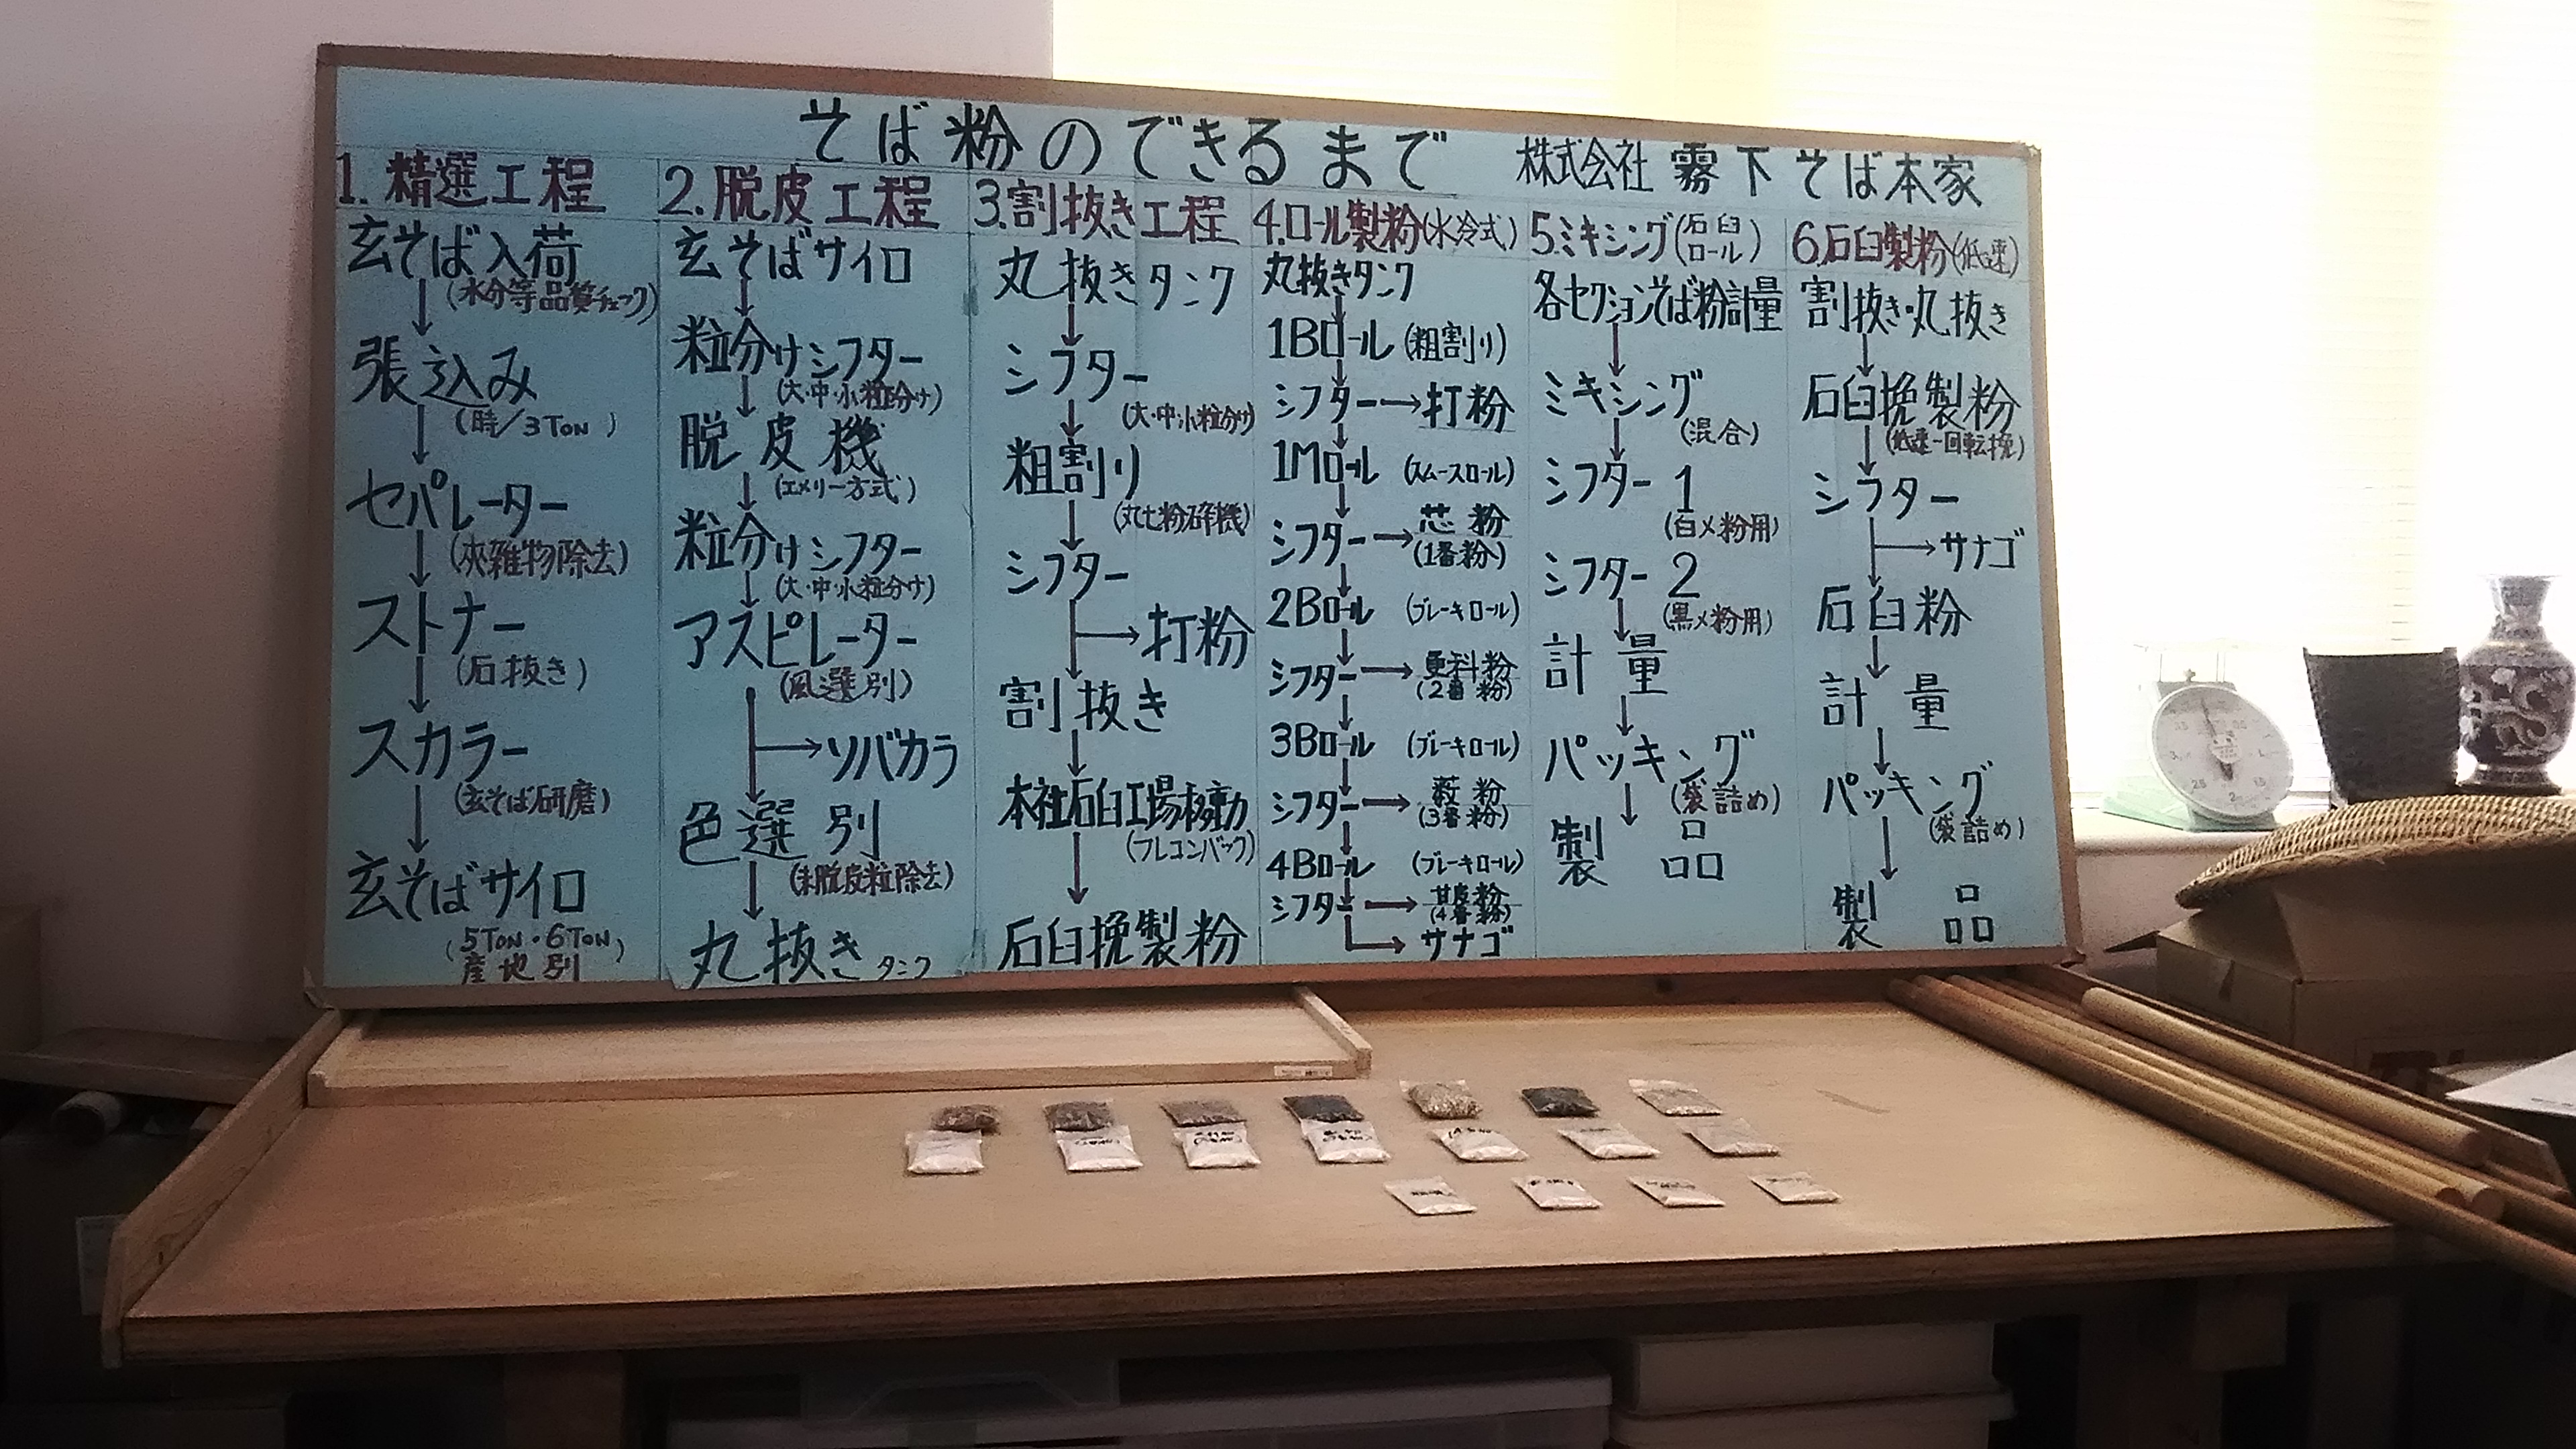 そば粉のできるまで
株式会社 霧下そば本家
1.精選工程
玄そば入荷
(水分等品質チェック)
張込み
(時/3TON)
セパレーター
(夾雑物除去)
ストナー
(石抜き)
スカラー
(玄そば研磨)
玄そばサイロ
(5TON・6TON)
産地別
2.脱皮工程
玄そばサイロ
粒分けシフター
(大・中・小粒分け)
脱皮機
(エメリー方式)
粒分けシフター
(大・中・小粒分け)
アスピレーター
(風選別)
→ソバカラ
色選別
(未脱皮粒除去)
丸抜きタンク
3.割抜き工程
丸抜きタンク
シフター
(大・中・小粒分け)
粗割り
(丸七粉砕機)
シフター
→打粉
割抜き
本社石臼工場移動
(フレコンバック)
石臼挽製粉
4.ロール製粉(水冷式)
丸抜きタンク
1Bロール (粗割り)
シフター→打粉
1Mロール (スムースロール)
シフター→芯粉
(1番粉)
2Bロール (ブレーキロール)
シフター→更科粉
(2番粉)
3Bロール (ブレーキロール)
シフター→薮粉
(3番粉)
4Bロール (ブレーキロール)
シフター→甘皮粉
(4番粉)
→サナゴ
5.ミキシング(石臼ロール)
各セクションそば粉計量
ミキシング
(混合)
シフター1
(白メ粉用)
シフター2
(黒メ粉用)
計量
パッキング
(袋詰め)
製品
6.石臼製粉(低速)
割抜き・丸抜き
石臼挽製粉
(低速一回転挽)
シフター
→サナゴ
石臼粉
計量
パッキング
(袋詰め)
製品